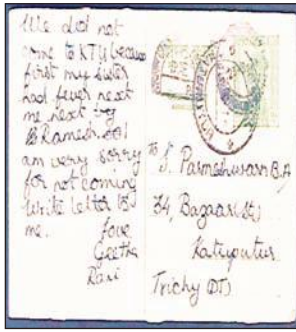 We did not
come to KTU because
first my sister
had fever next
me next by
Ramesh. I
am very sorry
for not coming
Write letter to
me. Love
Geetha
Rani
To S. Parmeshwaran B.A
34, Bagaar (St)
Kattuputur
Trichy (DT)